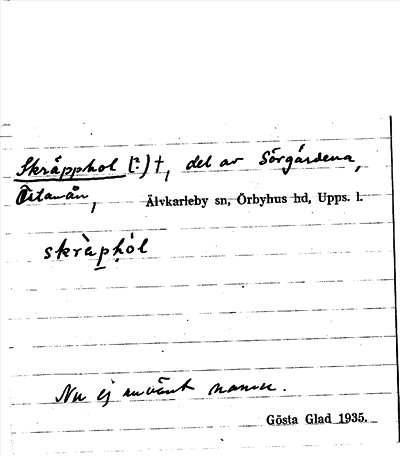 Skräpphol (?) †, del av Sörgårdena,
Östanån, Älvkarleby sn, Örbyhus hd, Upps. l.
skràp̣hól
Nu ej använt namn.
Gösta Glad 1935.